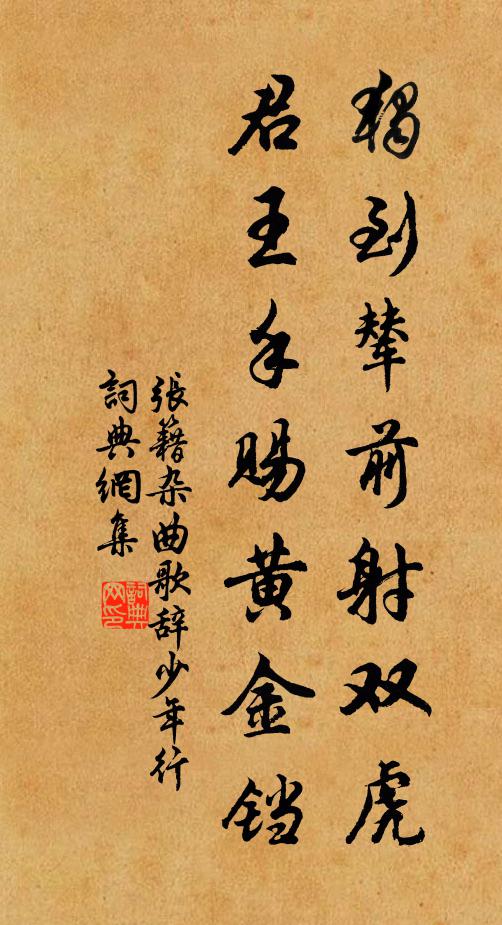 獨到輦前射双虎
君王手賜黄金铛
張籍杂曲歌辞少年行
詞典網集
詞典网印